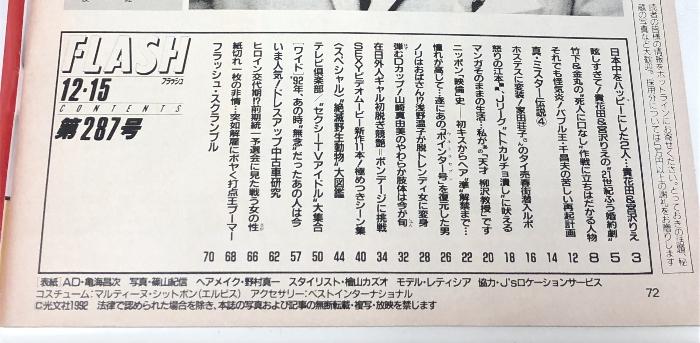 読者の皆様の情報をホットラインにお寄せください。とっておきの話題、秘
蔵の写真など大歓迎。採用分については5万円以上の謝礼をお贈りします
FLASH
フラッシュ
12・15
CONTENTS
第287号
日本中をハッピーにした2人…貴花田&宮沢りえ 3
眩しすぎて!貴花田&宮沢りえの“21世紀ふう婚約劇” 5
竹下&金丸の“死人に口なし”作戦に立ちはだかる人物 8
それでも怪気炎!バブル王・千昌夫の苦しい再起計画 12
真・ミスター伝説④ 14
ホステスに変装・家田荘子のタイ売春街潜入ルポ 16
怒りの江本“Jリーグ”トトカルチョ潰し”に吠える 18
マンガそのままの生活…私が“の”天才 柳沢教授”です 20
ニッポン「映倫」史 初キスからヘア“準”解禁まで… 22
憧れが高じて…遂にあの“ポインター号”を復元した男 26
ノリはおばさん!?浅野温子が脱トレンディ女に変身 28
弾むDカップ!山崎真由美のやわらか肢体は今が旬 32
在日外人ギャル初脱ぎ競艶=ボンデージに挑戦 34
SEXYビデオムービー新作11本!極めつきシーン集 40
〈スペシャル〉“絶滅野生動物”大図鑑 44
テレビ倶楽部/“セクシーTVアイドル”大集合 50
「ワイド」'92年、あの時“無念”だったあの人は今 57
いま人気!ドレスアップ中古車研究 62
ヒロイン交代期!?前期統一予選会に見た戦う女の性 66
紙切れ一枚の非情…突如解雇にボヤく打点王ブーマー 68
フラッシュ・スクランブル 70
[表紙]AD・亀海昌次 写真・篠山紀信 ヘアメイク・野村真一 スタイリスト・檜山カズオ モデル・レティシア 協力・J'sロケーションサービス
コスチューム:マルティーヌ・シットボン(エルピス) アクセサリー:ベストインターナショナル
©光文社1992 法律で認められた場合を除き、本誌の写真および記事の無断転載・複写・放映を禁じます
72